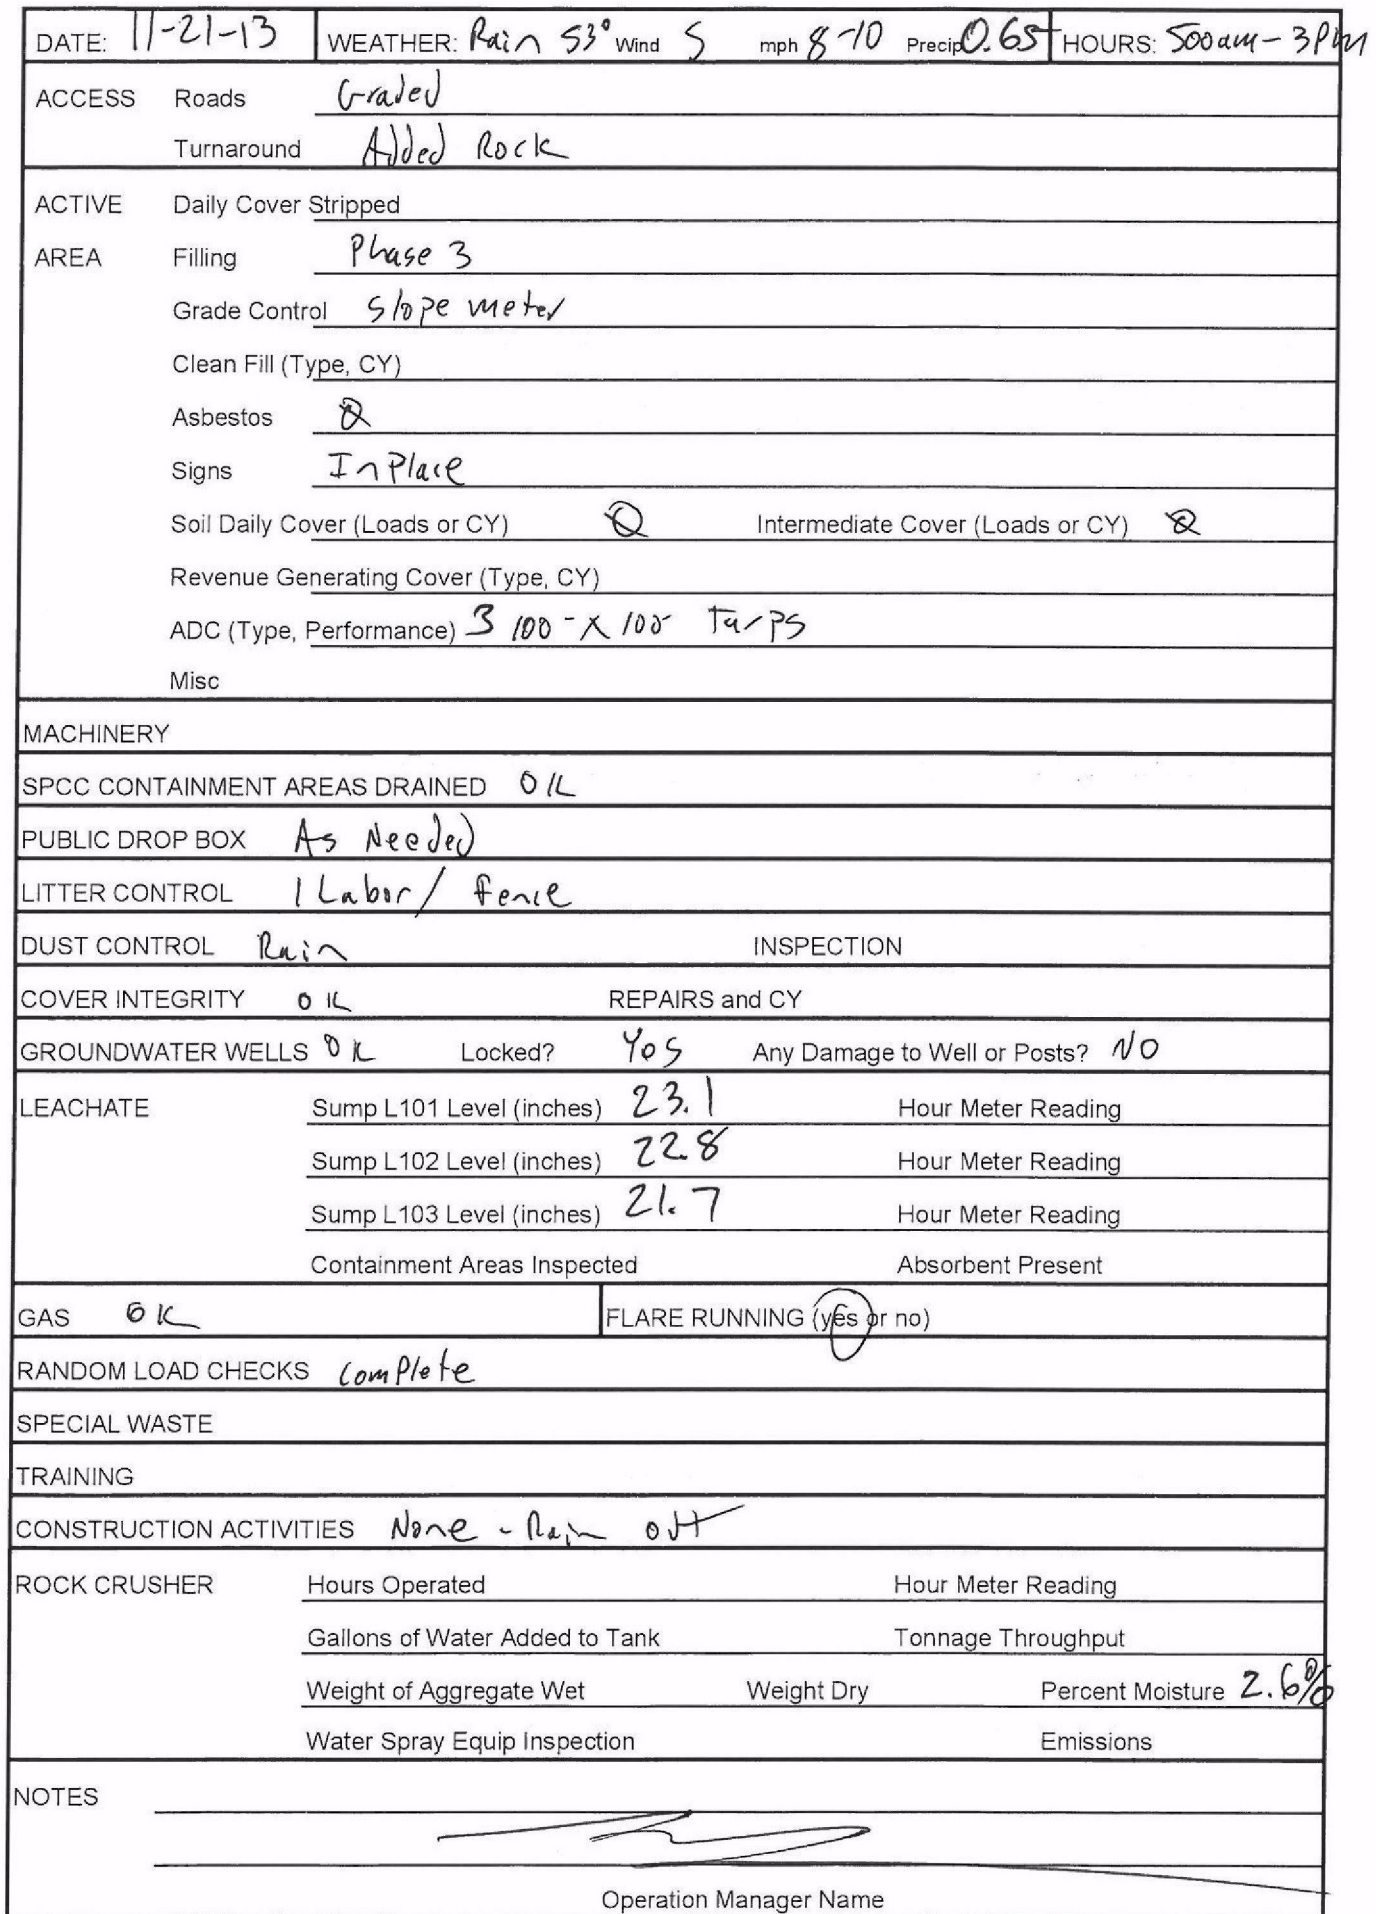 DATE: 11-21-13 WEATHER: Rain 53° Wind S mph 8-10 Precip 0.65 HOURS: 500am-3PM
ACCESS Roads Graded
Turnaround Added Rock
ACTIVE Daily Cover Stripped
AREA Filling Phase 3
Grade Control Slope meter
Clean Fill (Type, CY)
Asbestos Ø
Signs In Place
Soil Daily Cover (Loads or CY) Ø Intermediate Cover (Loads or CY) Ø
Revenue Generating Cover (Type, CY)
ADC (Type, Performance) 3 100-X 100 Tarps
Misc
MACHINERY
SPCC CONTAINMENT AREAS DRAINED OK
PUBLIC DROP BOX As Needed
LITTER CONTROL 1 Labor/ Fence
DUST CONTROL Rain INSPECTION
COVER INTEGRITY OK REPAIRS and CY
GROUNDWATER WELLS OK Locked? Yes Any Damage to Well or Posts? NO
LEACHATE Sump L101 Level (inches) 23.1 Hour Meter Reading
Sump L102 Level (inches) 22.8 Hour Meter Reading
Sump L103 Level (inches) 21.7 Hour Meter Reading
Containment Areas Inspected Absorbent Present
GAS OK FLARE RUNNING (yes or no)
RANDOM LOAD CHECKS Complete
SPECIAL WASTE
TRAINING
CONSTRUCTION ACTIVITIES None - Rain out
ROCK CRUSHER Hours Operated Hour Meter Reading
Gallons of Water Added to Tank Tonnage Throughput
Weight of Aggregate Wet Weight Dry Percent Moisture 2.6%
Water Spray Equip Inspection Emissions
NOTES
Operation Manager Name